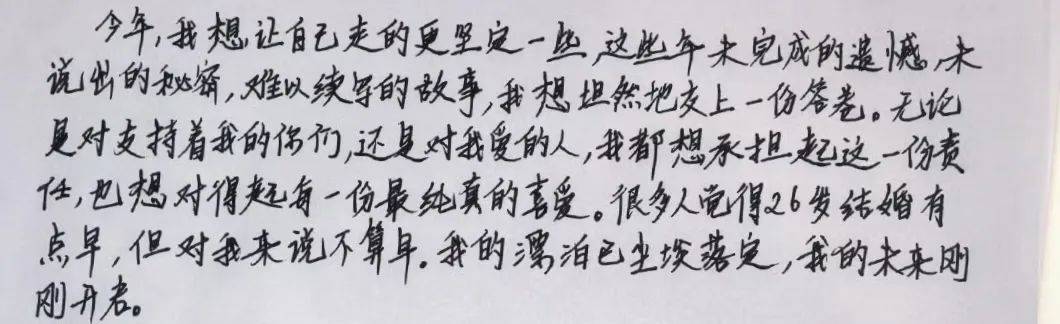 今年,我想让自己走的更坚定一些,这些年未完成的遗憾,未
说出的秘密,难以续写的故事,我想坦然地交上一份答卷。无论
是对支持着我的你们,还是对我爱的人,我都想承担起这一份责
任,也想对得起每一份最纯真的喜爱。很多人觉得26岁结婚有
点早,但对我来说不算早。我的漂泊已尘埃落定,我的未来刚
刚开启。